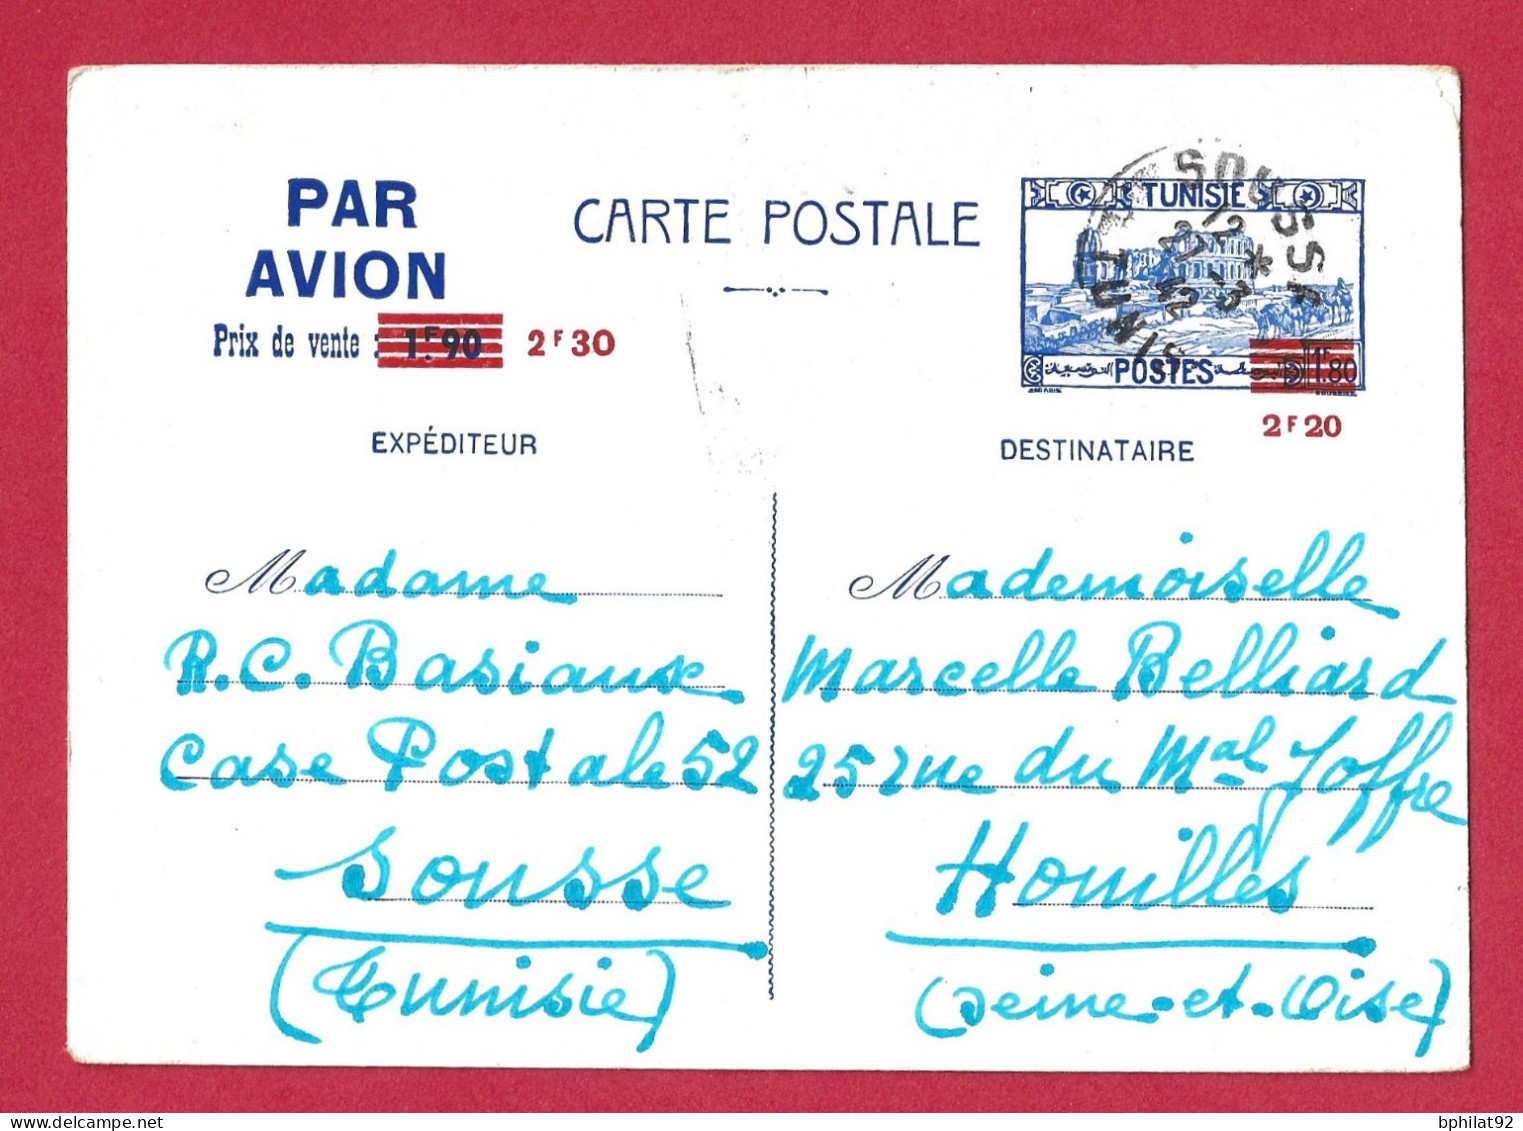 PAR
AVION
Prix de vente : 1F90 2F30
CARTE POSTALE
TUNISIE
POSTES
1F80
2F20
SOUSSE
12 *
27 -3
42
EXPÉDITEUR
DESTINATAIRE
Madame
R.C. Basiaux
Case Postale 52
Sousse
(Tunisie)
Mademoiselle
Marcelle Belliard
25 rue du Mal Joffre
Houilles
(Seine-et-Oise)
bphilat92